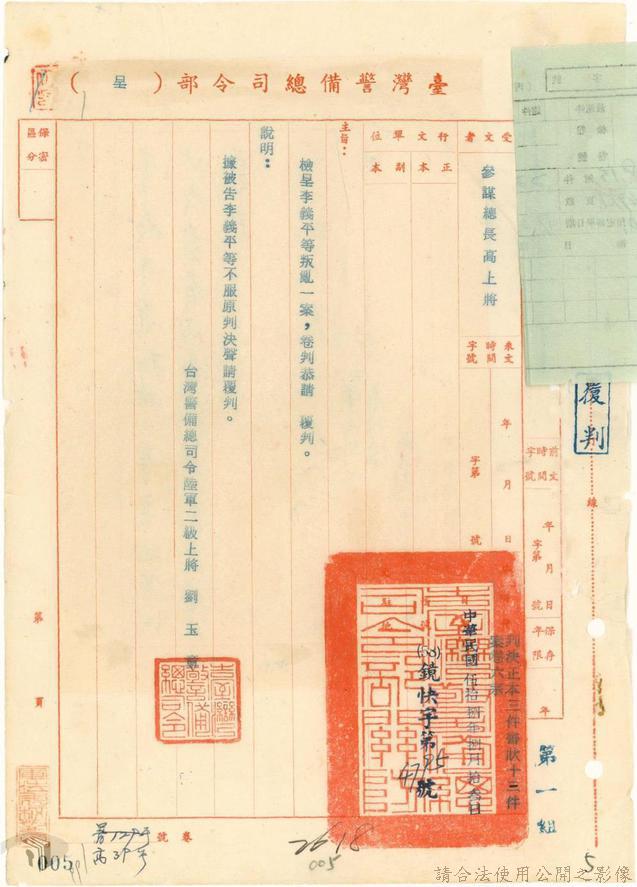 臺灣警備總司令部（呈）
保密區分
受文者
參謀總長高上將
行文單位
正本
副本
來文
時間
字號
年　月　日
字第　號
前文
時間
字號
年　月　日
字第　號
保存年限
年
主旨：
檢呈李義平等叛亂一案，卷判恭請　覆判。
說明：
據被告李義平等不服原判決聲請覆判。
台灣警備總司令陸軍二級上將　劉玉章
臺灣警備總司令
判決正本三件書狀十三件
案卷六宗
中華民國伍拾捌年捌月拾叁日
(58)鏡快字第4795號
覆判
線
第一組
第　頁
卷號
2618
005
005
5
請合法使用公開之影像